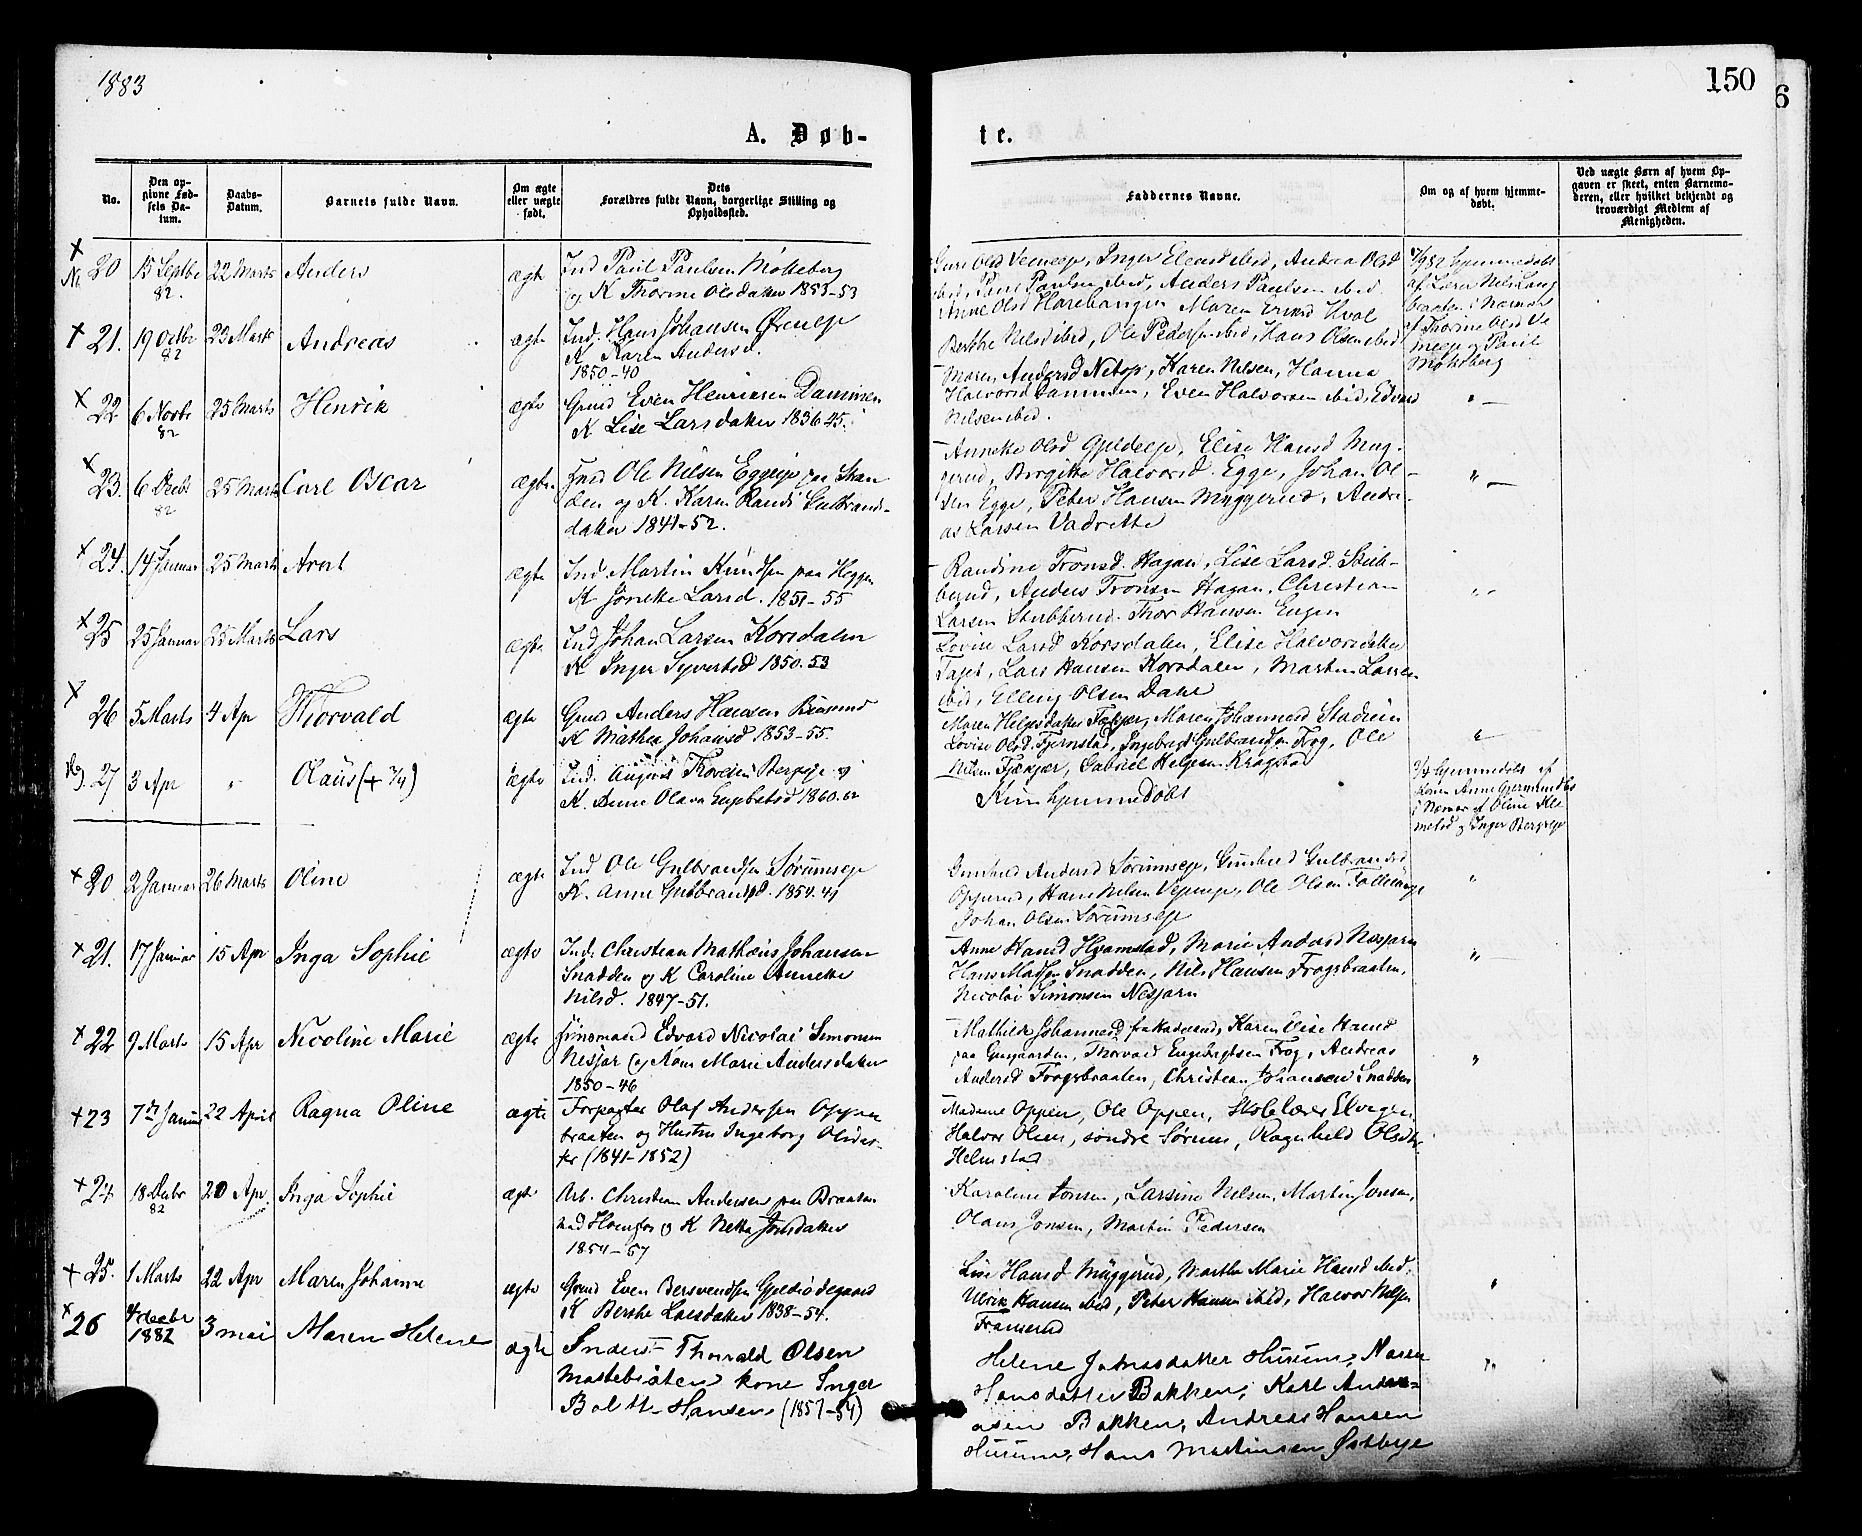 1883
150
6
A. Døb-
te.
No.
Den op-
givne Fød-
sels Da-
tum.
Daabs-
Datum.
Barnets fulde Navn.
Om ægte
eller uægte
født.
Dets
Forældres fulde Navn, borgerlige Stilling og
Opholdssted.
Faddernes Navne.
Om og af hvem hjemme-
døbt.
Ved uægte Børn af hvem Op-
gaven er skeet, enten Barnemo-
deren, eller hvilket bekjendt og
troværdigt Medlem af
Menigheden.
20 15 Septbr 82. 22 Marts Anders ægte
Ind Paul Paulsen Møkeberg
og K Thorine Olsdatter 1853-53
Inger ibid, Andrea Olsd
ibid, Paul Paulsen ibid, Anders Paulsen ibid
af Lærer Nils
21. 19 Octbr 82 23 Marts Andreas ægte
Ind. Hans Johansen Ørneeje
K Karen Andersd.
1850-40
Anne Olsd Harehaugen Maren Hval
Berthe Nilsd ibid, Ole Pedersen ibid, Hans Olsen ibid
af Thorine Olsd
og Paul
Møkeberg
22 6 Novbr 82 25 Marts Henrik ægte
Grud Even Henriksen Dammen
K Lise Larsdatter 1836 45.
Maren Andersd Netop, Karen Nilsen, Hanna
Halvorsd Dammen, Even Halvorsen ibid, Edvard
Nilsen ibid.
23. 6 Decbr 82 25 Marts Carl Oscar ægte
Ole Nilsen Eggeeje paa
og K. Karen Randi Gulbrands-
datter 1841-52.
Anneke Olsd Gjeldeeje, Elise Hansd Mug-
gerud, Birgitte Halvorsd. Egge, Johan Ol-
sen Egge, Peter Hansen Muggerud, Andre-
as Larsen Vadrette
24. 14 Januar 25 Marts ægte
Ind Martin Knudsen paa Heggen
K Larsd. 1851-55
Randine Tronsd. Hagan, Lise Larsd. Stub-
berud, Anders Tronsen Hagan, Christian
Larsen Stubberud. Thor Hansen Engen
25 25 Januar 25 Marts Lars ægte
Ind Johan Larsen Korsdalen
K Inger Syvertsd 1850. 53
Lovise Larsd Korsdalen, Elise Halvorsdatter
Lars Hansen Korsdalen, Martin Larsen
ibid, Elling Olsen Dahl
26 5 Marts 4 Apr Thorvald ægte
Grud Anders Hansen
K Mathea Johansd 1853-55.
Maren Helgesdatter Maren Johannesd
Lovise Olsd. Fjernstad, Ingebregt Gulbrandsen Frog, Ole
Nilsen Gabriel Helgesen Krogstad
27 3 Apr " Olaus (+ 7/4) ægte
Ind. August Thoresen Bergeje og
K. Anne Olava Engebretsd 1860.
Kun hjemmedøbt
hjemmedøbt af
Anne
i Nærvær af Oline
og Inger Bergeje
20 2 Januar 26 Marts Oline ægte
Ind Ole Gulbrandsen Sørumseje
K. Anne Gulbrandsd. 1854. 49
Gunhild Andersd Sørumseje, Gunhild Gulbrandsd
Opperud, Hans Nilsen Ole Olsen
Johan Olsen Sørumseje
21. 17 Januar 15 Apr Inga Sophie ægte
Ind. Christian Mathæus Johansen
Snadden og K Caroline Annette
Nilsd. 1847-51.
Anne Hansd Hvamstad, Marie Andersd Nesjarn
Hans Madsen Snadden, Nils Hansen Frogsbraaten,
Nicolai Simonsen Nesjarn
22 9 Marts 15 Apr Nicoline Marie ægte
Edvard Nicolai Simonsen
Nesjar og Kone Marie Andersdatter
1850-46
Mathilde Johannesd Karen Elise Hansd
paa Thorvald Engebrigtsen Frog, Andreas
Andersd Frogsbraaten, Christian Johansen Snadden
23 7de Januar 22 April Ragna Oline ægte
Forpagter Olaf Andersen Oppen
braaten og Hustru Ingeborg Olsdat-
ter (1841-1852)
Madame Oppen, Ole Oppen, Skolelærer
Halvor Olsen, søndre Sørum, Ragnhild Olsdtr.
Helmstad
24 18 Decbr 82 20 Apr. Inga Sophie ægte
Arb. Christian Andersen paa Braaten
ved Hønefos og K Netta Jonsdatter
1854-57
Karoline Jonsen, Larsine Nilsen, Martin Jonsen,
Olaus Jonsen, Martin Pedersen
25. 1 Marts 22 Apr Maren Johanne ægte
Grud Even Bersvendsen Gjeldsødegaard
K Berthe Larsdatter 1838-54.
Lise Hansd Muggerud, Marthe Marie Hansd ibid,
Ulrik Hansen ibid, Peter Hansen ibid, Halvor Nilsen
Franserud
26 4 decbr 1882 3 mai Maren Helene ægte
Inderst Thorvald Olsen
kone Inger
Bolette Hansen (1857-54)
Helene Jakobsdatter Hurum, Karen
Hansdatter Bakken, Karl Andre-
asen Bakken, Andreas Hansen
Hurum, Hans Martinsen Østbye